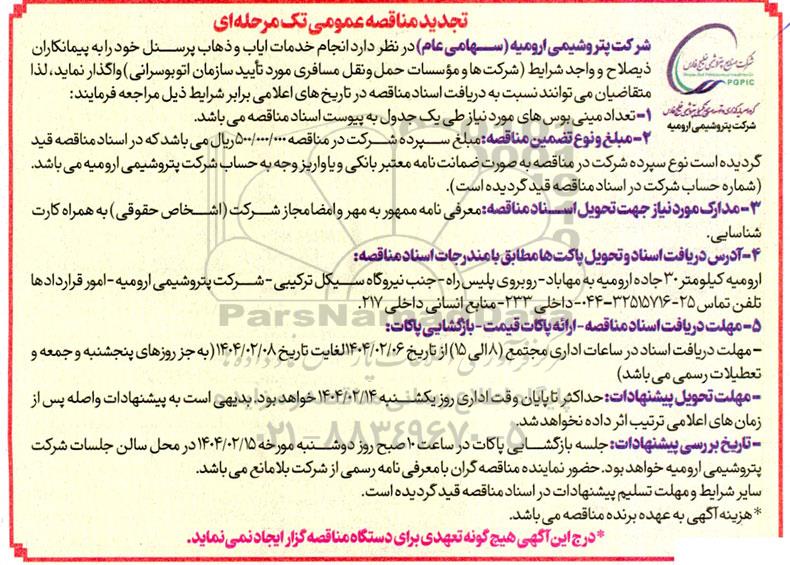 تجدید مناقصه عمومی تک مرحله‌ای
شرکت صنایع پتروشیمی خلیج فارس
PGPIC
شرکت پتروشیمی ارومیه
شرکت پتروشیمی ارومیه (سهامی عام) در نظر دارد انجام خدمات ایاب و ذهاب پرسنل خود را به پیمانکاران
ذیصلاح و واجد شرایط (شرکت ها و مؤسسات حمل ونقل مسافری مورد تأیید سازمان اتوبوسرانی) واگذار نماید، لذا
متقاضیان می توانند نسبت به دریافت اسناد مناقصه در تاریخ های اعلامی برابر شرایط ذیل مراجعه فرمایند:
۱- تعداد مینی بوس های مورد نیاز طی یک جدول به پیوست اسناد مناقصه می باشد.
۲- مبلغ و نوع تضمین مناقصه: مبلغ سپرده شرکت در مناقصه ۵۰۰/۰۰۰/۰۰۰ ریال می باشد که در اسناد مناقصه قید
گردیده است نوع سپرده شرکت در مناقصه به صورت ضمانت نامه معتبر بانکی و یا واریز وجه به حساب شرکت پتروشیمی ارومیه می باشد.
(شماره حساب شرکت در اسناد مناقصه قید گردیده است).
۳- مدارک مورد نیاز جهت تحویل اسناد مناقصه: معرفی نامه ممهور به مهر و امضا مجاز شرکت (اشخاص حقوقی) به همراه کارت
شناسایی.
۴- آدرس دریافت اسناد و تحویل پاکت ها مطابق با مندرجات اسناد مناقصه:
ارومیه کیلومتر ۳۰ جاده ارومیه به مهاباد- روبروی پلیس راه - جنب نیروگاه سیکل ترکیبی - شرکت پتروشیمی ارومیه - امور قراردادها
تلفن تماس ۲۵-۳۲۵۵۵۷۱۶-۰۴۴ داخلی ۲۳۳- منابع انسانی داخلی ۲۱۷.
۵- مهلت دریافت اسناد مناقصه - ارائه پاکات قیمت - بازگشایی پاکات:
- مهلت دریافت اسناد در ساعات اداری مجتمع (۸ الی ۱۵) از تاریخ ۱۴۰۴/۰۲/۰۶ لغایت تاریخ ۱۴۰۴/۰۲/۰۸ (به جز روزهای پنجشنبه و جمعه و
تعطیلات رسمی می باشد)
- مهلت تحویل پیشنهادات: حداکثر تا پایان وقت اداری روز یکشنبه ۱۴۰۴/۰۲/۱۴ خواهد بود. بدیهی است به پیشنهادات واصله پس از
زمان های اعلامی ترتیب اثر داده نخواهد شد.
- تاریخ بررسی پیشنهادات: جلسه بازگشایی پاکات در ساعت ۱۰ صبح روز دوشنبه مورخه ۱۴۰۴/۰۲/۱۵ در محل سالن جلسات شرکت
پتروشیمی ارومیه خواهد بود. حضور نماینده مناقصه گران با معرفی نامه رسمی از شرکت بلامانع می باشد.
سایر شرایط و مهلت تسلیم پیشنهادات در اسناد مناقصه قید گردیده است.
* هزینه آگهی به عهده برنده مناقصه می باشد.
* درج این آگهی هیچ گونه تعهدی برای دستگاه مناقصه گزار ایجاد نمی نماید.
ParsNamadData
۰۲۱-۸۸۳۴۹۶۷۰-۵